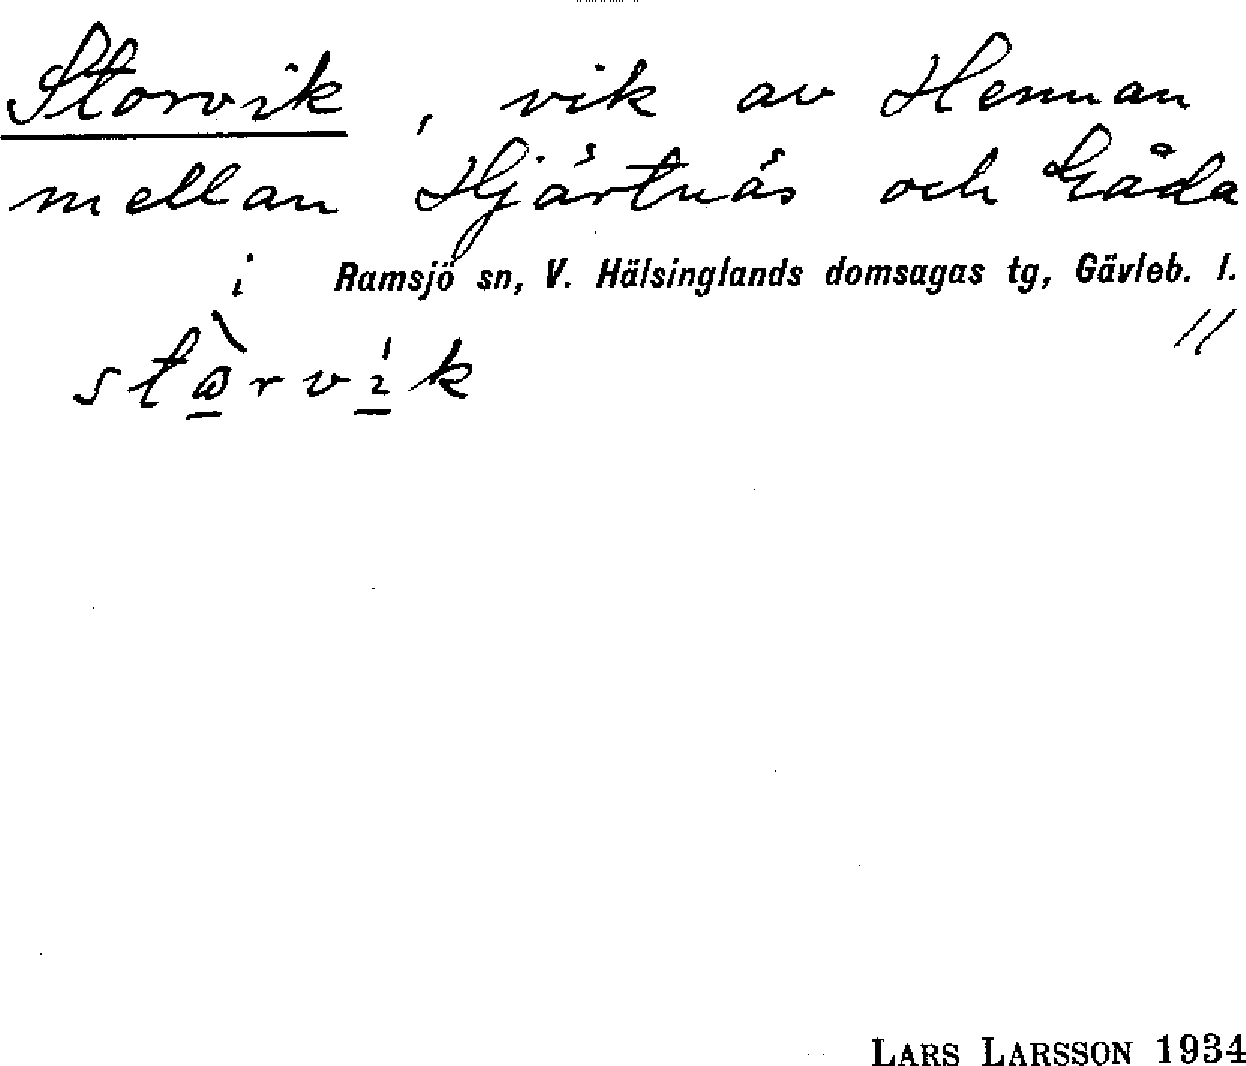 Storvik, vik av Hennan
mellan Hjärtnäs och Gåda
i Ramsjö sn, V. Hälsinglands domsagas tg, Gävleb. l.
//
LARS LARSSON 1934